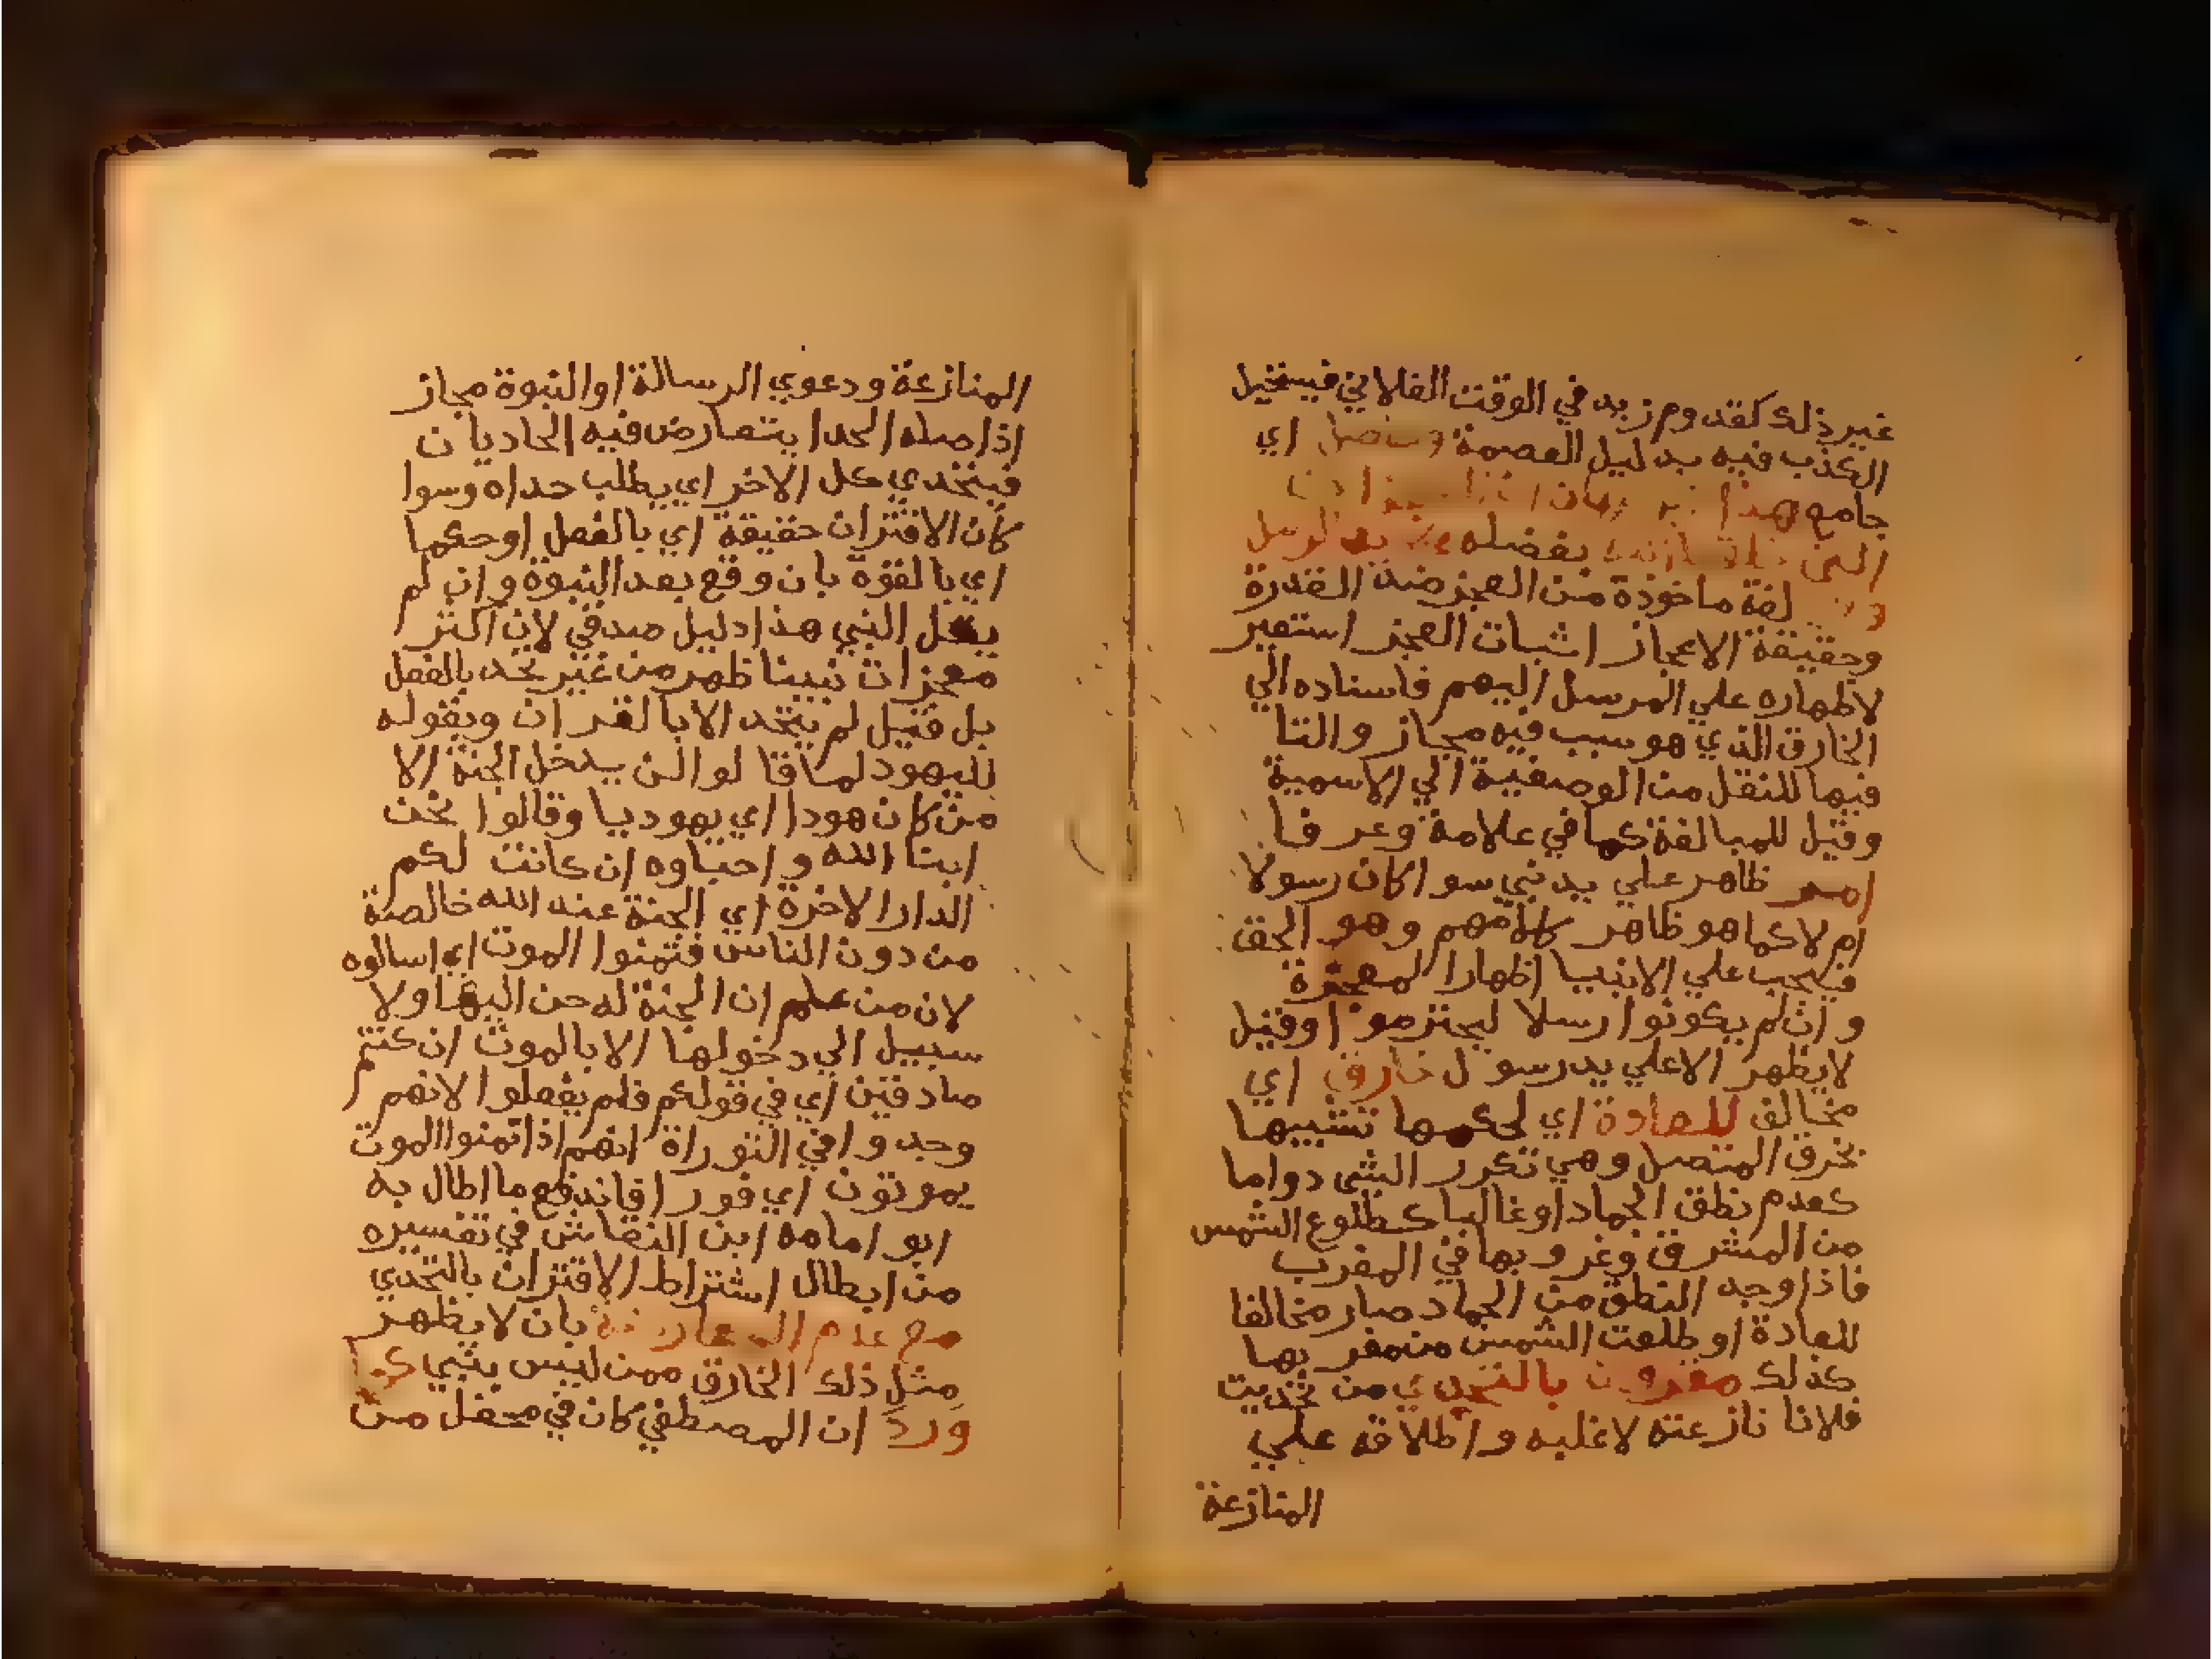 غير ذلك كقدوم زيد في الوقت الفلاني فيستحيل
الكذب فيه بدليل العصمة اي
جامع هذا
بفضله لرسل
لغة ماخوذة من العجز ضد القدرة
وحقيقة الاعجاز اثبات العجز استعير
لاظهاره علي المرسل اليهم فاسناده الي
الخارق الذي هو سبب فيه مجاز والتا
فيها للنقل من الوصفية الي الاسمية
وقيل للمبالغة كما في علامة وعرفا
امر ظاهر علي يد نبي سوا كان رسولا
ام لا كما هو ظاهر كلامهم وهو الحق
فيجب علي الانبيا اظهار المعجزة
وان لم يكونوا رسلا ليحترموا وقيل
لا يظهر الا علي يد رسول خارق اي
مخالف للعادة اي لحكمها تشبيها
بخرق المتصل وهي تكرر الشي دواما
كعدم نطق الجماد او غالبا كطلوع الشمس
من المشرق وغروبها في المغرب
فاذا وجد النطق من الجماد صار مخالفا
للعادة او طلعت الشمس من مغربها
كذلك مقرون بالتحدي من تحديت
فلانا نازعته لاغلبه واطلاقه علي
المنازعة
المنازعة ودعوي الرسالة او النبوة مجاز
اذ اصله الحدا يتعارض فيه الحاديان
فيتحدي كل الاخر اي يطلب حداه وسوا
كان الاقتران حقيقة اي بالفعل او حكما
اي بالقوة بان وقع بعد النبوة وان لم
يقل النبي هذا دليل صدقي لان اكثر
معجزات نبينا ظهر من غير تحد بالفعل
بل قيل لم يتحد الا بالقران وبقوله
لليهود لما قالوا لن يدخل الجنة الا
من كان هودا اي يهوديا وقالوا نحن
ابنا الله واحباوه ان كانت لكم
الدار الاخرة اي الجنة عند الله خالصة
من دون الناس فتمنوا الموت اي اسالوه
لان من علم ان الجنة له حن اليها ولا
سبيل الي دخولها الا بالموت ان كنتم
صادقين اي في قولكم فلم يفعلوا لانهم
وجدوا في التوراة انهم اذا تمنوا الموت
يموتون اي فورا فاندفع ما اطال به
ابو امامة ابن النقاش في تفسيره
من ابطال اشتراط الاقتران بالتحدي
مع عدم المعارضة بان لا يظهر
مثل ذلك الخارق ممن ليس بنبي كما
ورد ان المصطفي كان في محفل من